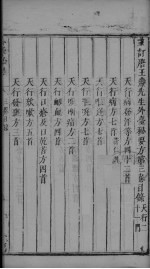 重訂唐王燾先生外臺秘要方第三卷目錄 天行二十一門
天行病發汗等方四十二首
天行嘔逆方七首
天行嘔啘方七首
天行喉咽痛方二首
天行衄血方四首
天行口瘡及口乾苦方四首
天行咳嗽方五首
天行發斑方三首